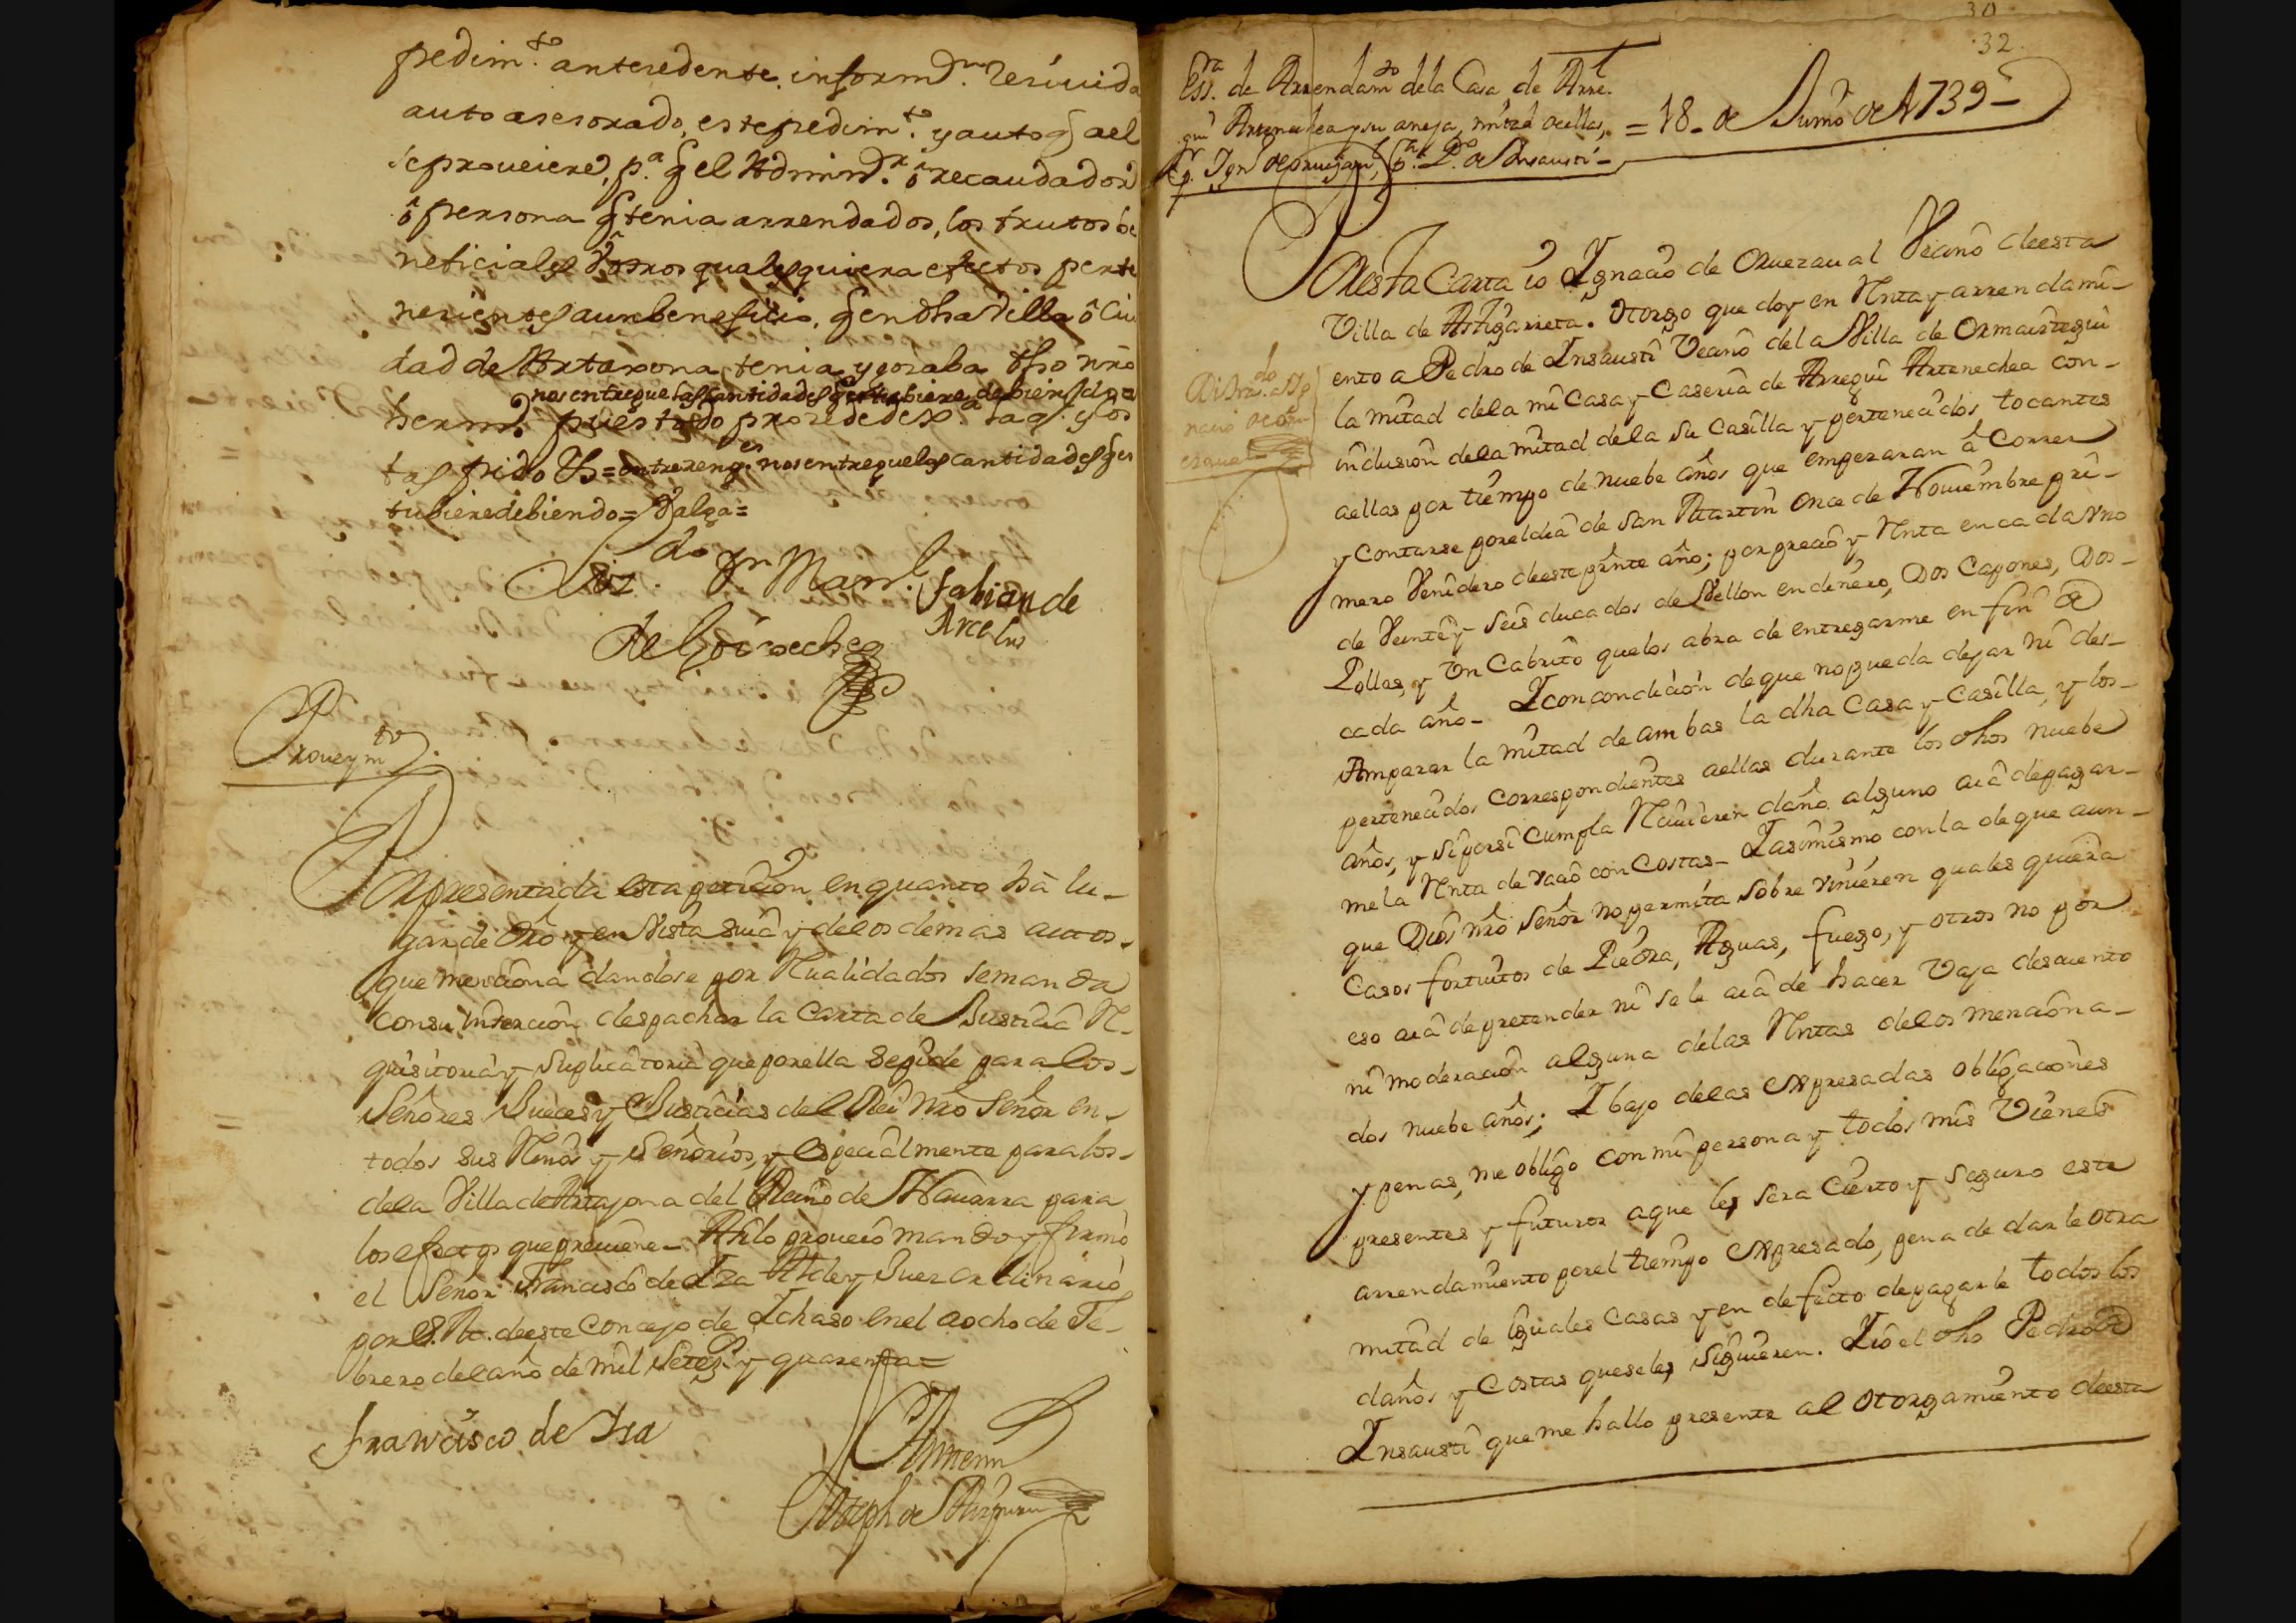 pedim.to antesedente, inform.n reciuida
auto asesorado, este pedim.to y auto q̃ a el
se proueiere, p.a q̃ el Admin.r ô recaudador
ô persona q̃ tenia arrendados, los frutos be
neficiales ô otros qualesquiera efectos perte
necientes a un beneficio, q̃ en dha villa ô Ciu
dad de Artaxona, tenia y gozaba dho nrõ
nos entregue las cantidades q̃ estubiere debiendo
herm.o pues todo prozede de
tas pido Us = entrereng.es nos entregue las cantidades q̃ es
tubiere debiendo = Valga =
Liz.do Jn Man.l
de Goicoechea
Fabian de
Arcelus
Proueym.to
Por presentada esta peticion en quanto hâ lu-
gar de dro y en vista suia y de los demas autos
que menciona dandose por Rualidados se manda
con su insercion despachar la Carta de Justicia R-
quisitoria y suplicatoria que por ella se pide para los
Señores Jueces y Justicias del Rei nrõ Señor en
todos sus Rinos y Señorios, y especialmente para los
de la Villa de Artajona del Reino de Nauarra para
los efectos que preuiene - Asi lo proueio mando y firmo
el Señor Francisco de Iza Alcde y Juez ordinario
por S. M. de este Concejo de Ichaso en el a ocho de Fe-
brero del año de mil setez.s y quarenta =
Francisco de Iza
Ante mi
Joseph de Aizpuru
30
32
Ess.ra de Arrendam.to de la Casa de Arre
gui Artenechea y su aneja, mitad de ellas,
p.r Ign.o de Oruezaual, p.a P.o de Insausti -
= 18 - de Junio de 1739 -
Por esta Carta io Ignacio de Oruezaual Vecino de esta
Villa de Astigarreta. Otorgo que doy en Rnta y arrendami-
ento a Pedro de Insausti Vecino de la Villa de Ormaiztegui
la mitad de la mi Casa y Caseria de Arregui Artenechea con
inclusion de la mitad de la su Casilla y pertenecidos tocantes
a ellas por tiempo de nuebe años que empezaran â Correr
y Contarse por el dia de San Martin once de Nouiembre pri-
mero Venidero de este prnte año; por precio y Rnta en cada vno
de Veinte y Seis ducados de Vellon en dinero, Dos Capones, Dos
Pollas, y Vn Cabrito que los abra de entregarme en fin de
cada año - I con condicion de que no pueda dejar ni des-
Amparar la mitad de ambas la dha Casa y Casilla, y los
pertenecidos correspondientes a ellas durante los dhos nuebe
años, y si por si cumpla Rciuieren daño alguno aia de pagar-
me la Rnta de vacio con Costas - I asimismo con la de que aun-
que Dios nrõ Señor no permita sobre vinieren quales quiera
Casos fortuitos de Piedra, Aguas, fuego, y otros no por
eso aia de pretender ni se le aia de hacer Vaja descuento
ni moderacion alguna de las Rntas de los menciona-
dos nuebe años; I bajo de las expresadas obligaciones
y penas, me obligo con mi persona y todos mis Vienes
presentes y futuros a que les sera Cierto y seguro este
arrendamiento por el tiempo expresado, pena de darle otra
mitad de iguales casas y en defecto de pagarle todos los
daños y Costas que se les siguieren. I io el dho Pedro de
Insausti que me hallo presente al otorgamiento de esta